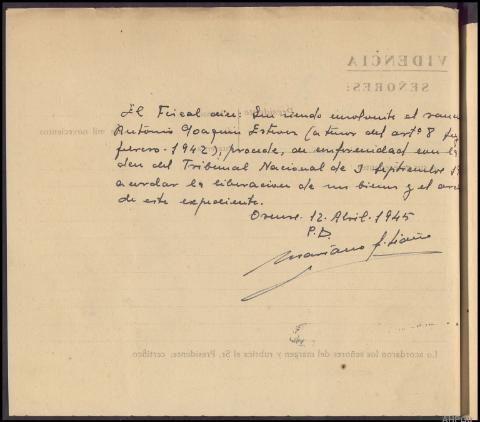 VIDENCIA
SEÑORES:
El Fiscal dice: Que siendo insolvente el
Antonio Joaquin Esteves (a tenor del artº 8
febrero-1942), procede, de conformidad con la
den del Tribunal Nacional de 3 Septiembre 19
acordar la liberacion de sus bienes y el
de este expediente.
Orense. 12. Abril. 1945
P.D.
Mariano
Lo acordaron los señores del margen y rubrica el Sr. Presidente, certifico.